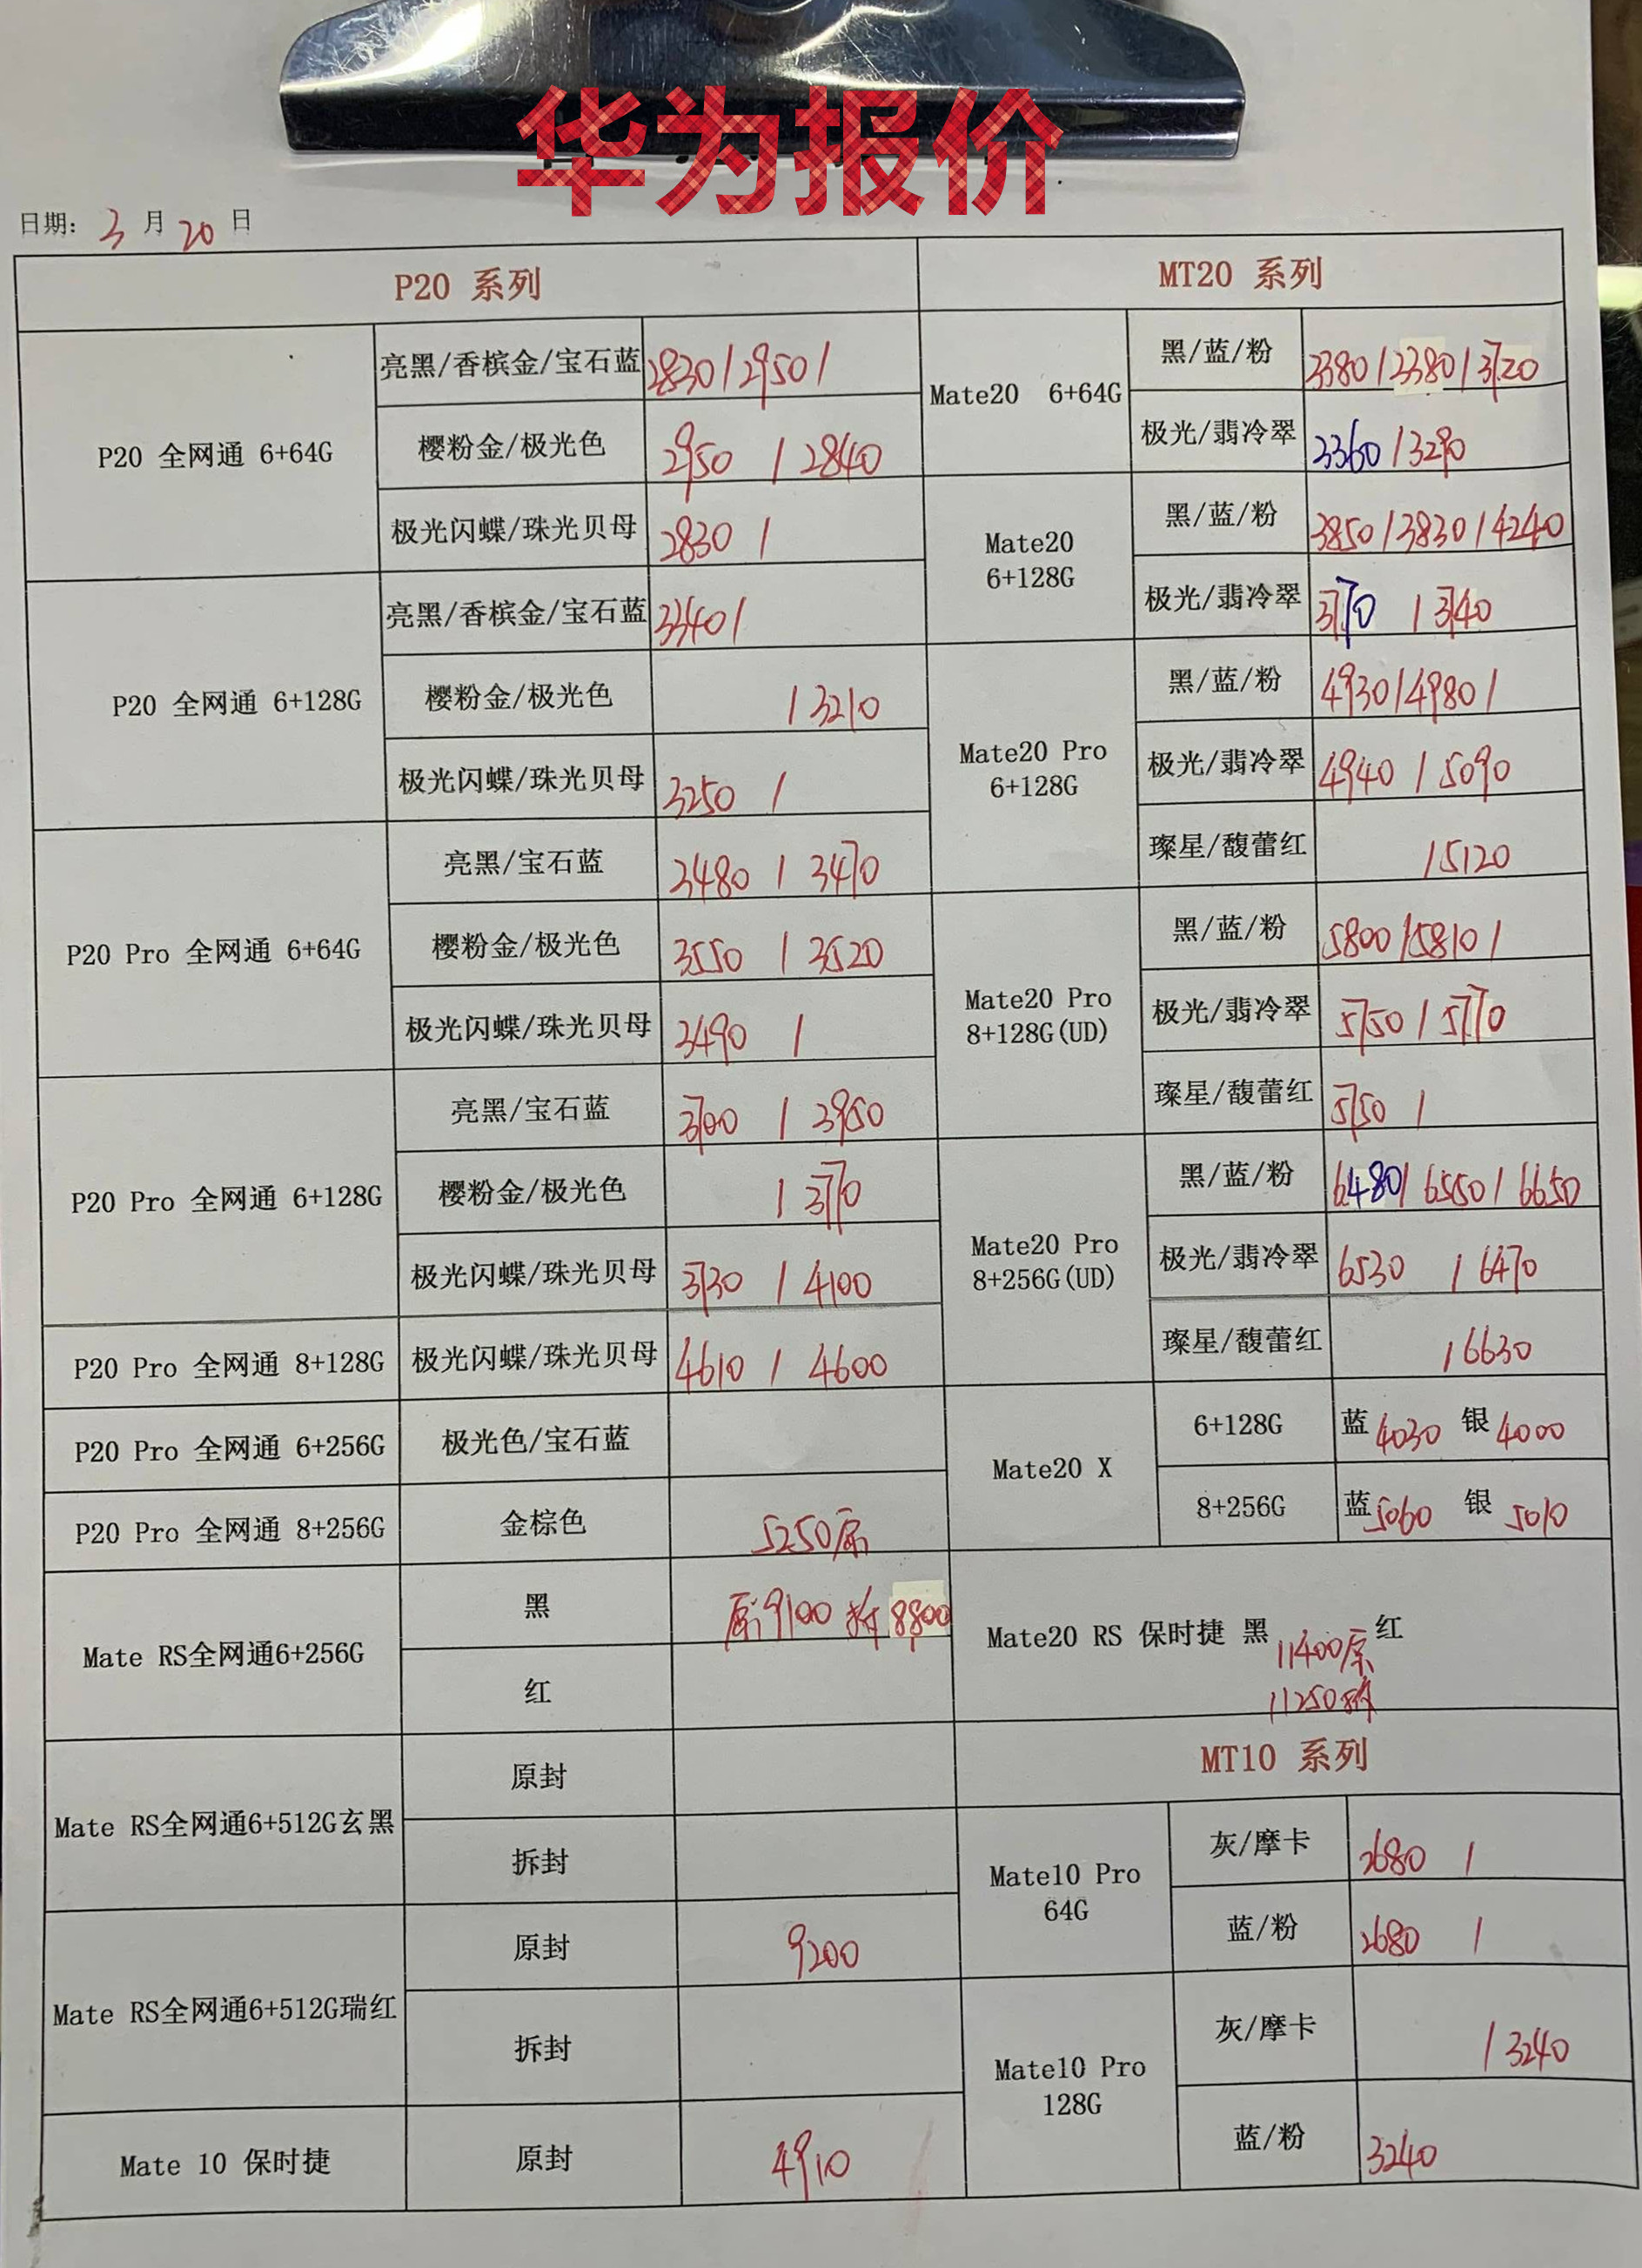 华为报价
日期: 3 月 20 日
P20 系列
P20 全网通 6+64G
亮黑/香槟金/宝石蓝 2830/2950/
樱粉金/极光色 2950 / 2840
极光闪蝶/珠光贝母 2830 /
P20 全网通 6+128G
亮黑/香槟金/宝石蓝 3340/
樱粉金/极光色 / 3210
极光闪蝶/珠光贝母 3250 /
P20 Pro 全网通 6+64G
亮黑/宝石蓝 3480 / 3470
樱粉金/极光色 3550 / 3520
极光闪蝶/珠光贝母 3490 /
P20 Pro 全网通 6+128G
亮黑/宝石蓝 3700 / 3950
樱粉金/极光色 / 3770
极光闪蝶/珠光贝母 3730 / 4100
P20 Pro 全网通 8+128G 极光闪蝶/珠光贝母 4610 / 4600
P20 Pro 全网通 6+256G 极光色/宝石蓝
P20 Pro 全网通 8+256G 金棕色 5250原
Mate RS全网通6+256G
黑 原9100 拆8800
红
Mate RS全网通6+512G玄黑
原封
拆封
Mate RS全网通6+512G瑞红
原封 9200
拆封
Mate 10 保时捷 原封 4910
MT20 系列
Mate20 6+64G
黑/蓝/粉 3380/3380/3720
极光/翡冷翠 3360/3290
Mate20
6+128G
黑/蓝/粉 3850/3830/4240
极光/翡冷翠 3770 / 3740
Mate20 Pro
6+128G
黑/蓝/粉 4930/4980/
极光/翡冷翠 4940 / 5090
璨星/馥蕾红 /5120
Mate20 Pro
8+128G(UD)
黑/蓝/粉 5800/5810/
极光/翡冷翠 5750 / 5770
璨星/馥蕾红 5750 /
Mate20 Pro
8+256G(UD)
黑/蓝/粉 6480/6550/6650
极光/翡冷翠 6530 / 6470
璨星/馥蕾红 / 6630
Mate20 X
6+128G 蓝4030 银4000
8+256G 蓝5060 银5010
Mate20 RS 保时捷 黑 11400原 红
11250拆
MT10 系列
Mate10 Pro
64G
灰/摩卡 2680 /
蓝/粉 2680 /
Mate10 Pro
128G
灰/摩卡 / 3240
蓝/粉 3240